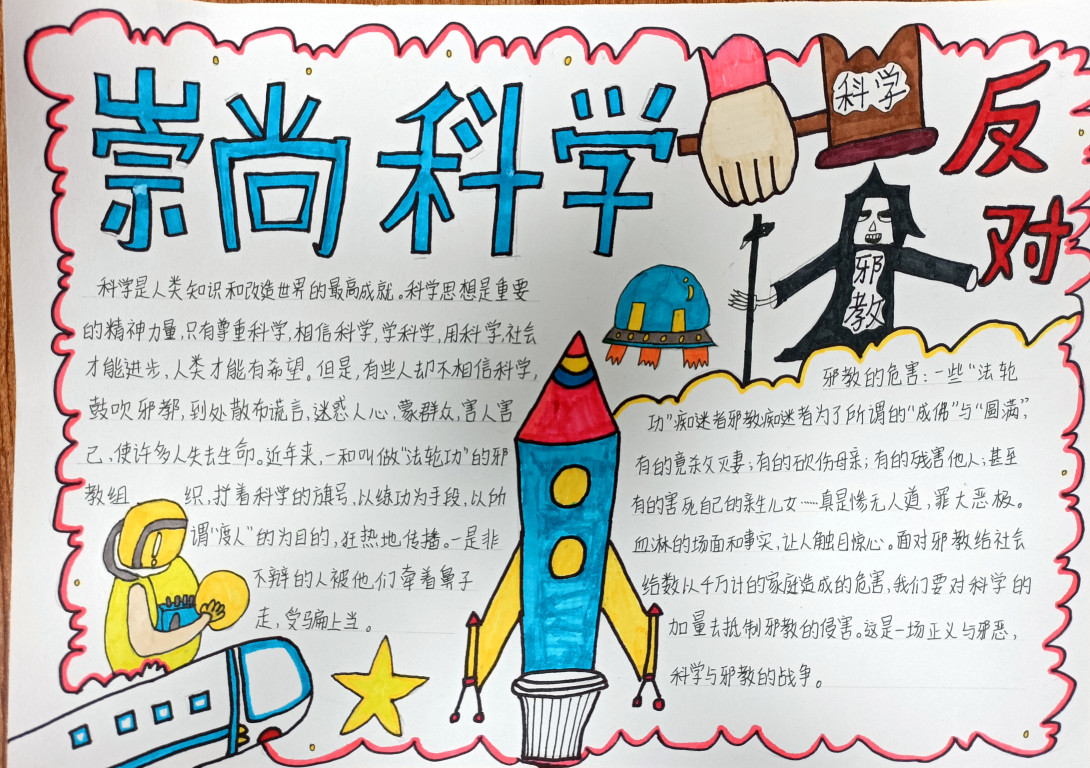 崇尚科学
科学
反对
邪教
科学是人类知识和改造世界的最高成就。科学思想是重要
的精神力量,只有尊重科学,相信科学,学科学,用科学,社会
才能进步,人类才能有希望。但是,有些人却不相信科学,
鼓吹邪教,到处散布谎言,迷惑人心,蒙群众,害人害
己、使许多人失去生命。近年来,一种叫做“法轮功”的邪
教组 织,拧着科学的旗号,以练功为手段,以所
谓“度人”的为目的,狂热地传播。一是非
不辩的人被他们牵着鼻子
走,受骗上当。
邪教的危害:一些“法轮
功”痴迷者邪教痴迷者为了所谓的“成佛”与“圆满”,
有的竟杀父灭妻;有的砍伤母亲;有的残害他人;甚至
有的害死自己的亲生儿女……真是惨无人道,罪大恶极。
血淋的场面和事实,让人触目惊心。面对邪教给社会
给数以千万计的家庭造成的危害,我们要对科学的
加量去抵制邪教的侵害。这是一场正义与邪恶,
科学与邪教的战争。